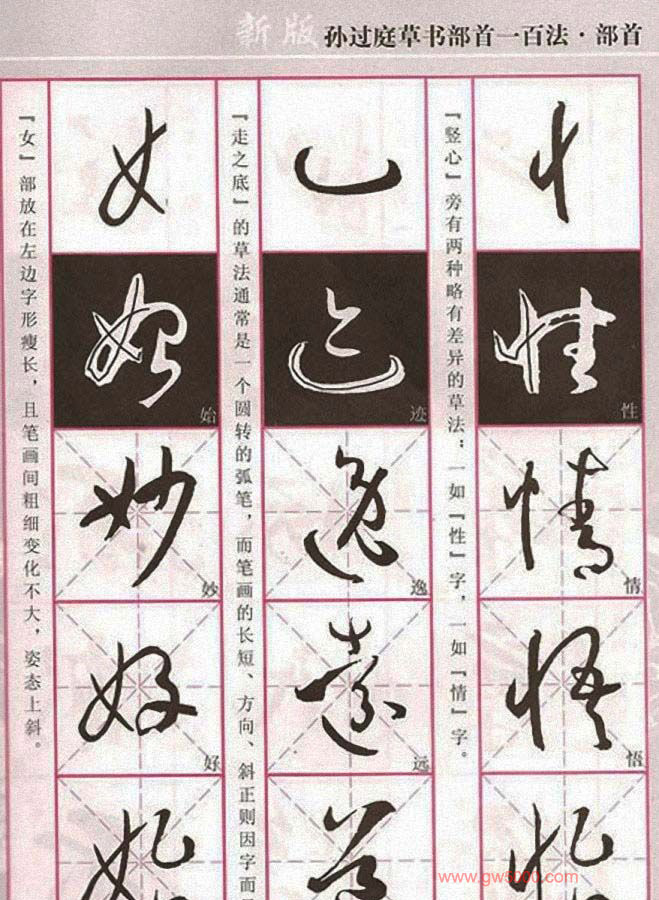 新版 孙过庭草书部首一百法·部首
『竖心』旁有两种略有差异的草法；一如『性』字，一如『情』字。
性
情
悟
『走之底』的草法通常是一个圆转的弧笔，而笔画的长短、方向、斜正则因字而
迹
逸
远
『女』部放在左边字形瘦长，且笔画间粗细变化不大，姿态上斜。
始
妙
好
www.gw5000.com